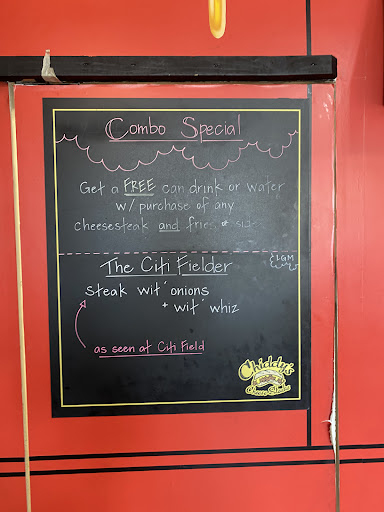 Combo Special
Get a FREE can drink or water
w/ purchase of any
cheesesteak and fries
The Citi Fielder
LGM
Steak wit' onions
+ wit' whiz
as seen at Citi Field
Chiddy's
Cheese Steaks